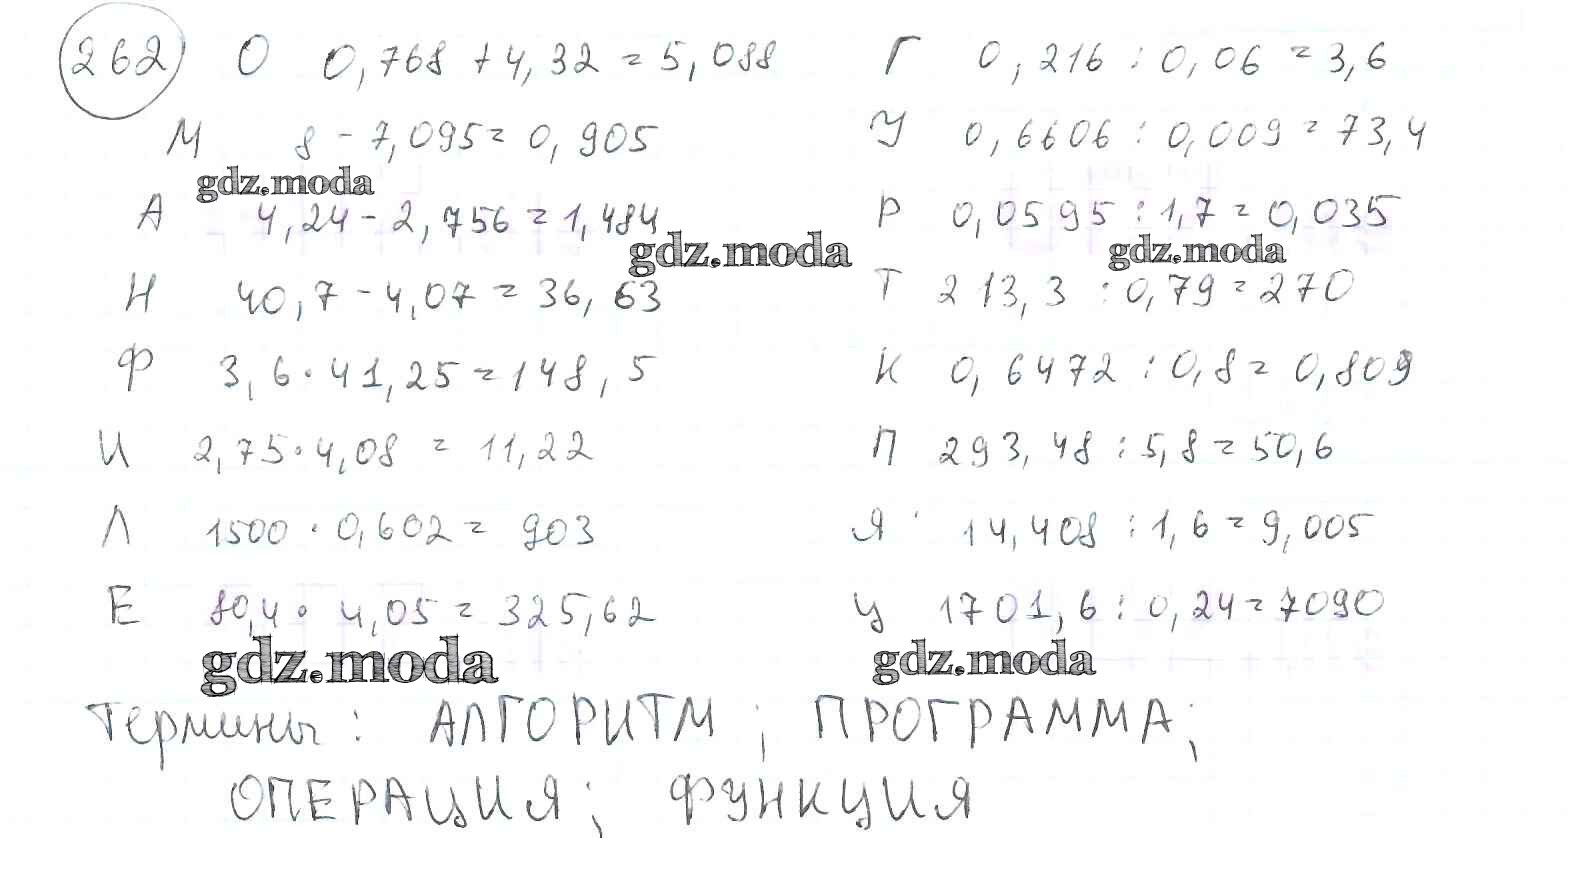 262 О 0,768 + 4,32 = 5,088 Г 0,216 : 0,06 = 3,6
М 8 - 7,095 = 0,905 У 0,6606 : 0,009 = 73,4
gdz.moda
А 4,24 - 2,756 = 1,484 Р 0,0595 : 1,7 = 0,035
gdz.moda gdz.moda
Н 40,7 - 4,07 = 36,63 Т 213,3 : 0,79 = 270
Ф 3,6 · 41,25 = 148,5 К 0,6472 : 0,8 = 0,809
И 2,75 · 4,08 = 11,22 П 293,48 : 5,8 = 50,6
Л 1500 · 0,602 = 903 Я 14,408 : 1,6 = 9,005
Е 80,4 · 4,05 = 325,62 Ц 1701,6 : 0,24 = 7090
gdz.moda gdz.moda
Термины : АЛГОРИТМ ; ПРОГРАММА;
ОПЕРАЦИЯ; ФУНКЦИЯ